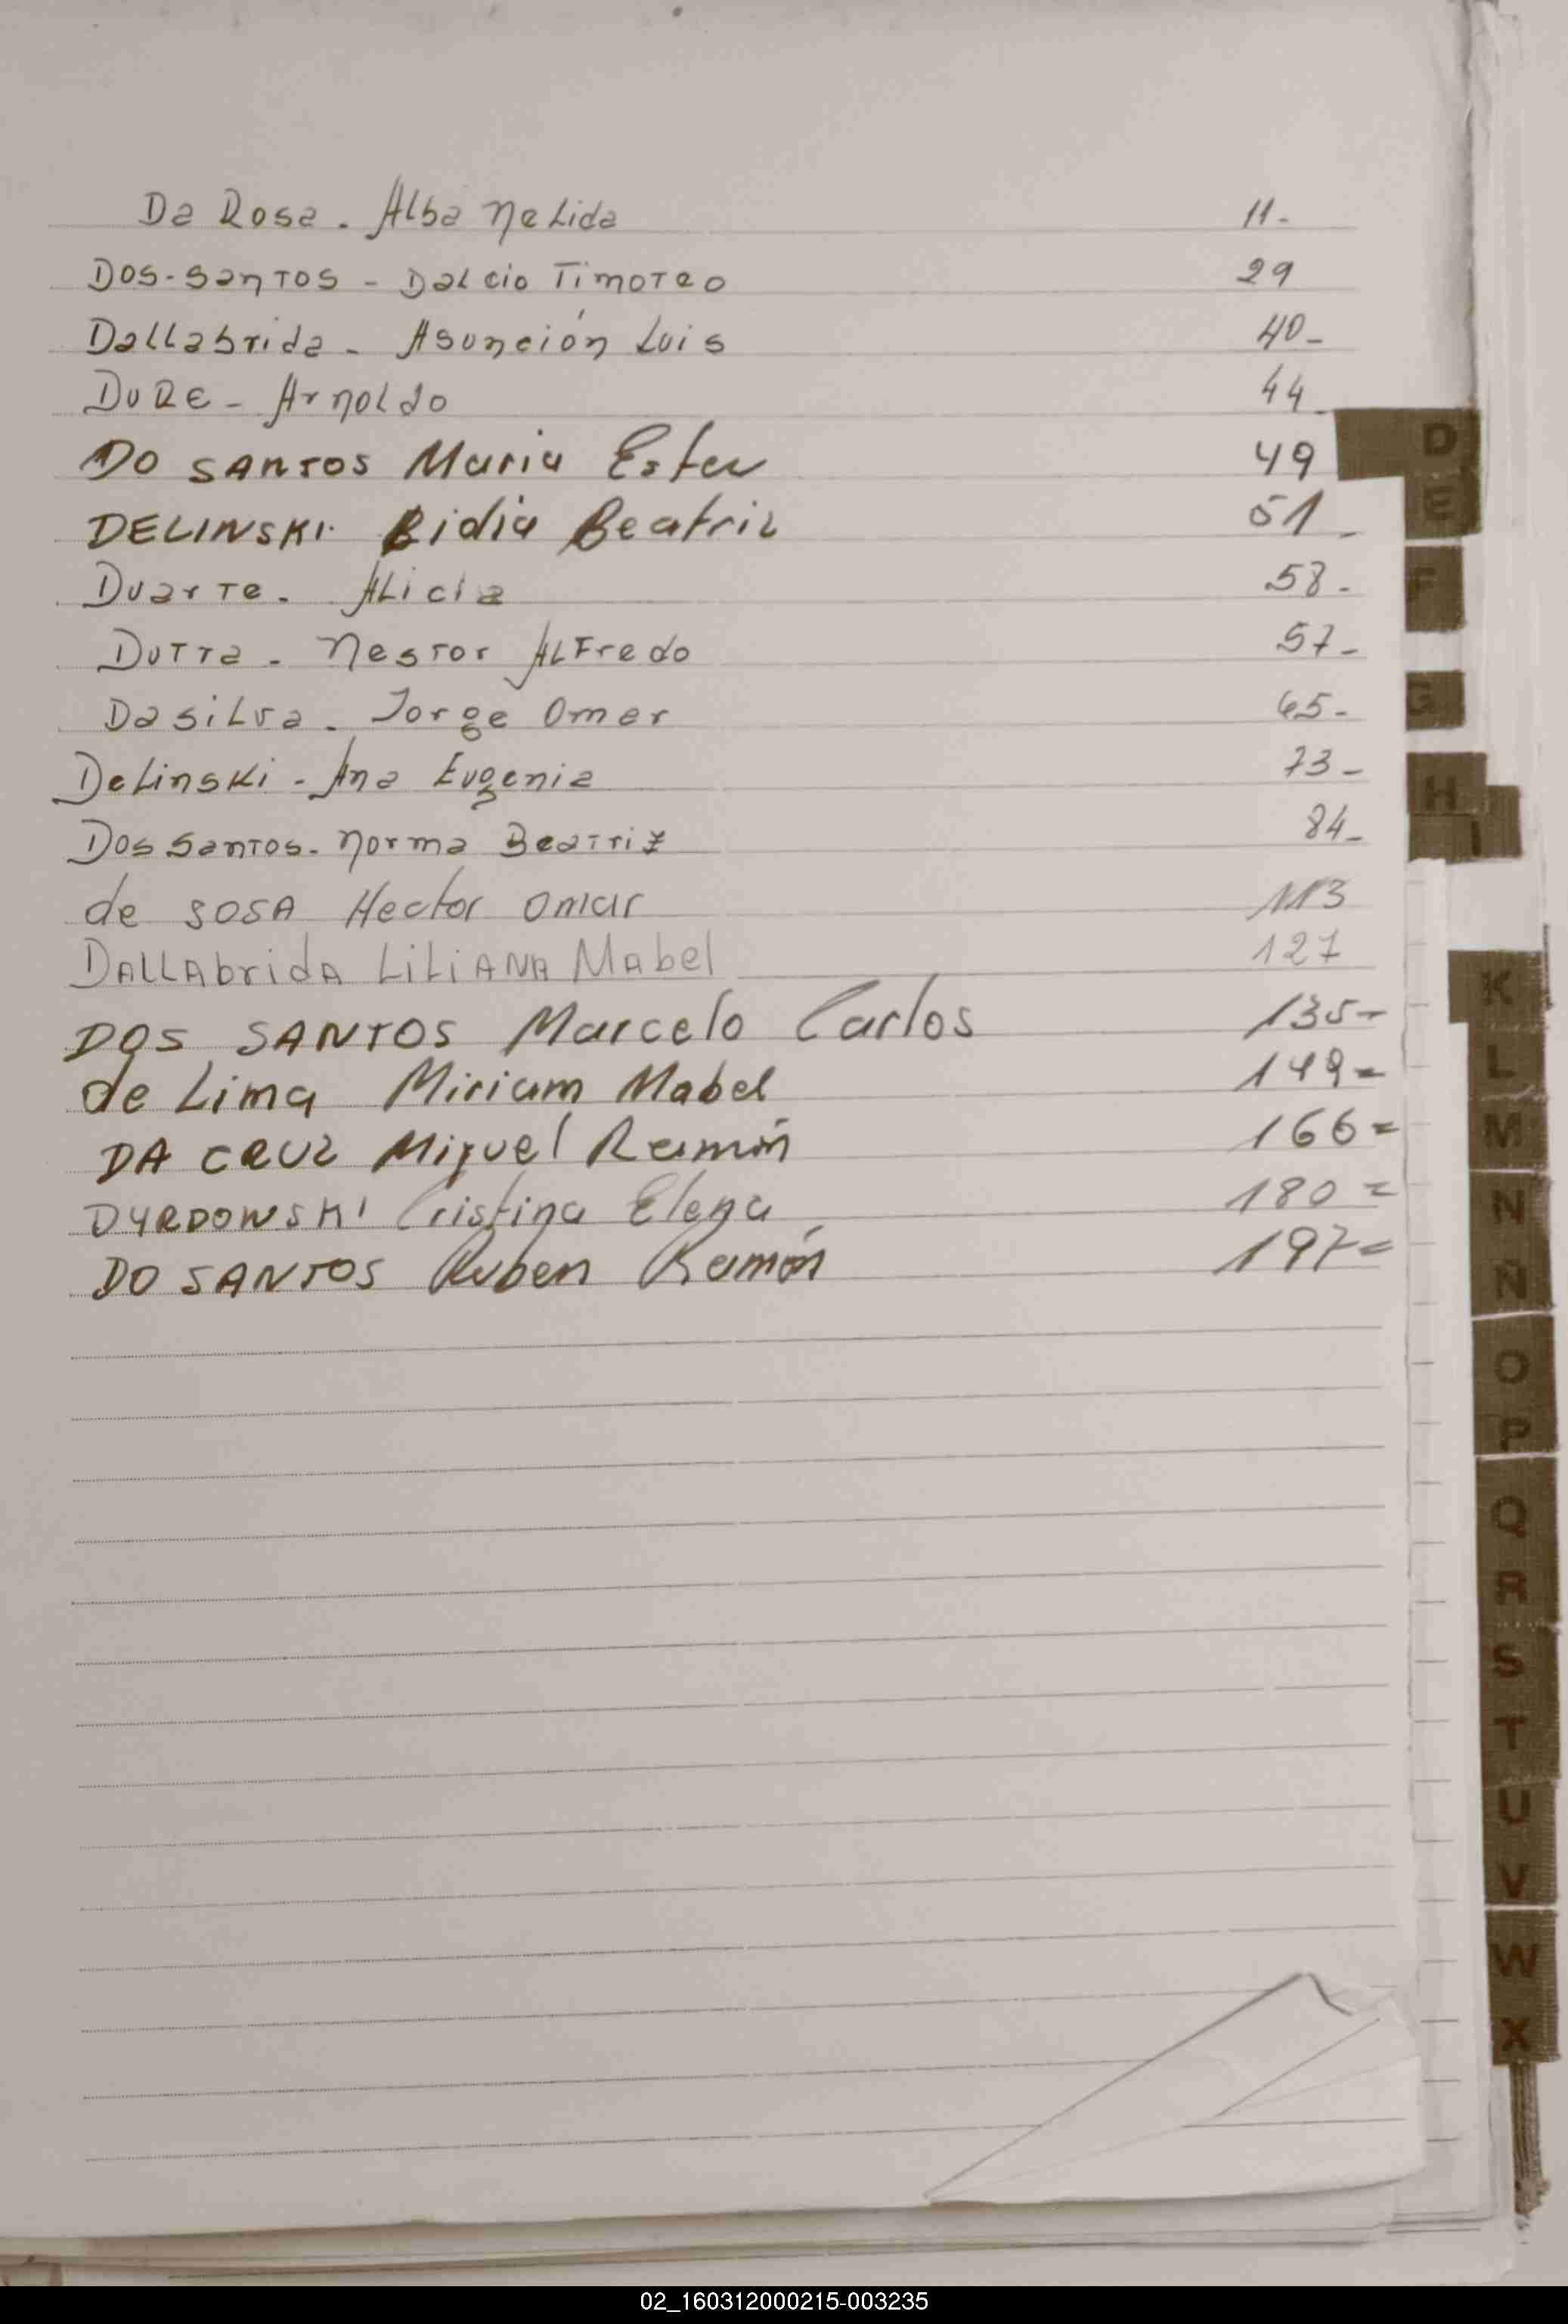 Da Rosa - Alba Nelida 11-
Dos-Santos - Dalcio Timoteo 29
Dallabrida - Asunción Luis 40-
DURE - Arnoldo 44-
DO SANTOS Maria Ester 49
DELINSKI Lidia Beatriz 51-
Duarte - Alicia 58-
Dutra - Nestor Alfredo 57-
Dasilva - Jorge Omer 65-
Delinski - Ana Eugenia 73-
Dos Santos - Norma Beatriz 84-
de SOSA Hector Omar 113
DALLAbridA LiLiANA MAbel 127
DOS SANTOS Marcelo Carlos 135-
de Lima Miriam Mabel 149=
DA CRUZ Miguel Ramón 166=
DYRDOWSKI Cristina Elena 180=
DO SANTOS Ruben Ramón 197=
D
E
F
G
H
I
K
L
M
N
Ñ
O
P
Q
R
S
T
U
V
W
X
02_160312000215-003235